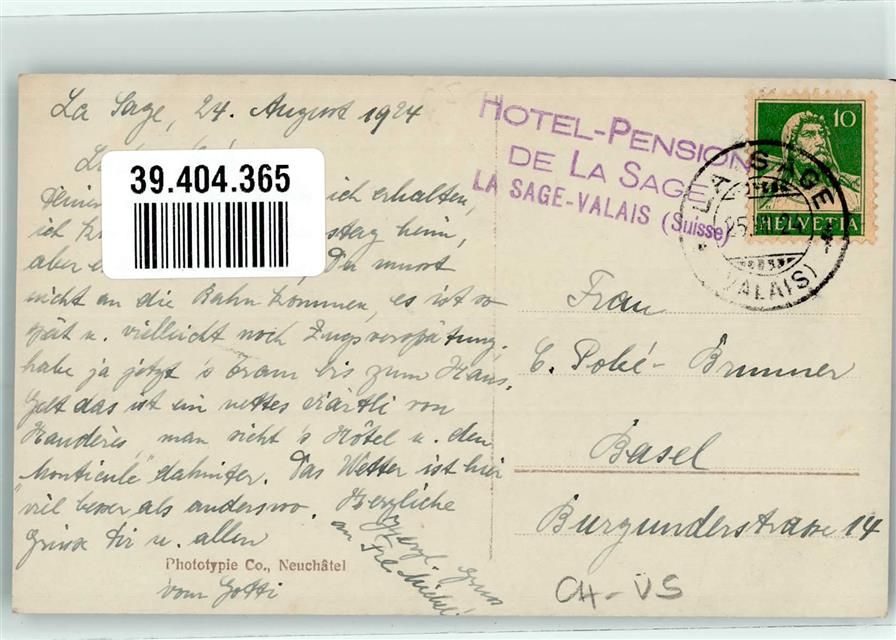 La Sage, 24. August 1924
39.404.365
ich erhalten,
ich heim,
aber Du musst
nicht an die Bahn kommen, es ist so
spät u. vielleicht noch Zugsverspätung.
habe ja jetzt 's Tram bis zum Haus,
Gelt das ist ein nettes Kärtli von
Haudères, man sieht 's Hôtel u. den
"Monticule" dahinter. Das Wetter ist hier
viel besser als anderswo. Herzliche
Grüsse Dir u. allen
vom Gotti
Herzl. Gruss
an Frl.
Phototypie Co., Neuchâtel
HOTEL-PENSION
DE LA SAGE
LA SAGE-VALAIS (Suisse)
10
HELVETIA
LA SAGE
25.VIII.24
(VALAIS)
Frau
E. Pobé-Brunner
Basel
Burgunderstrasse 14
CH-VS